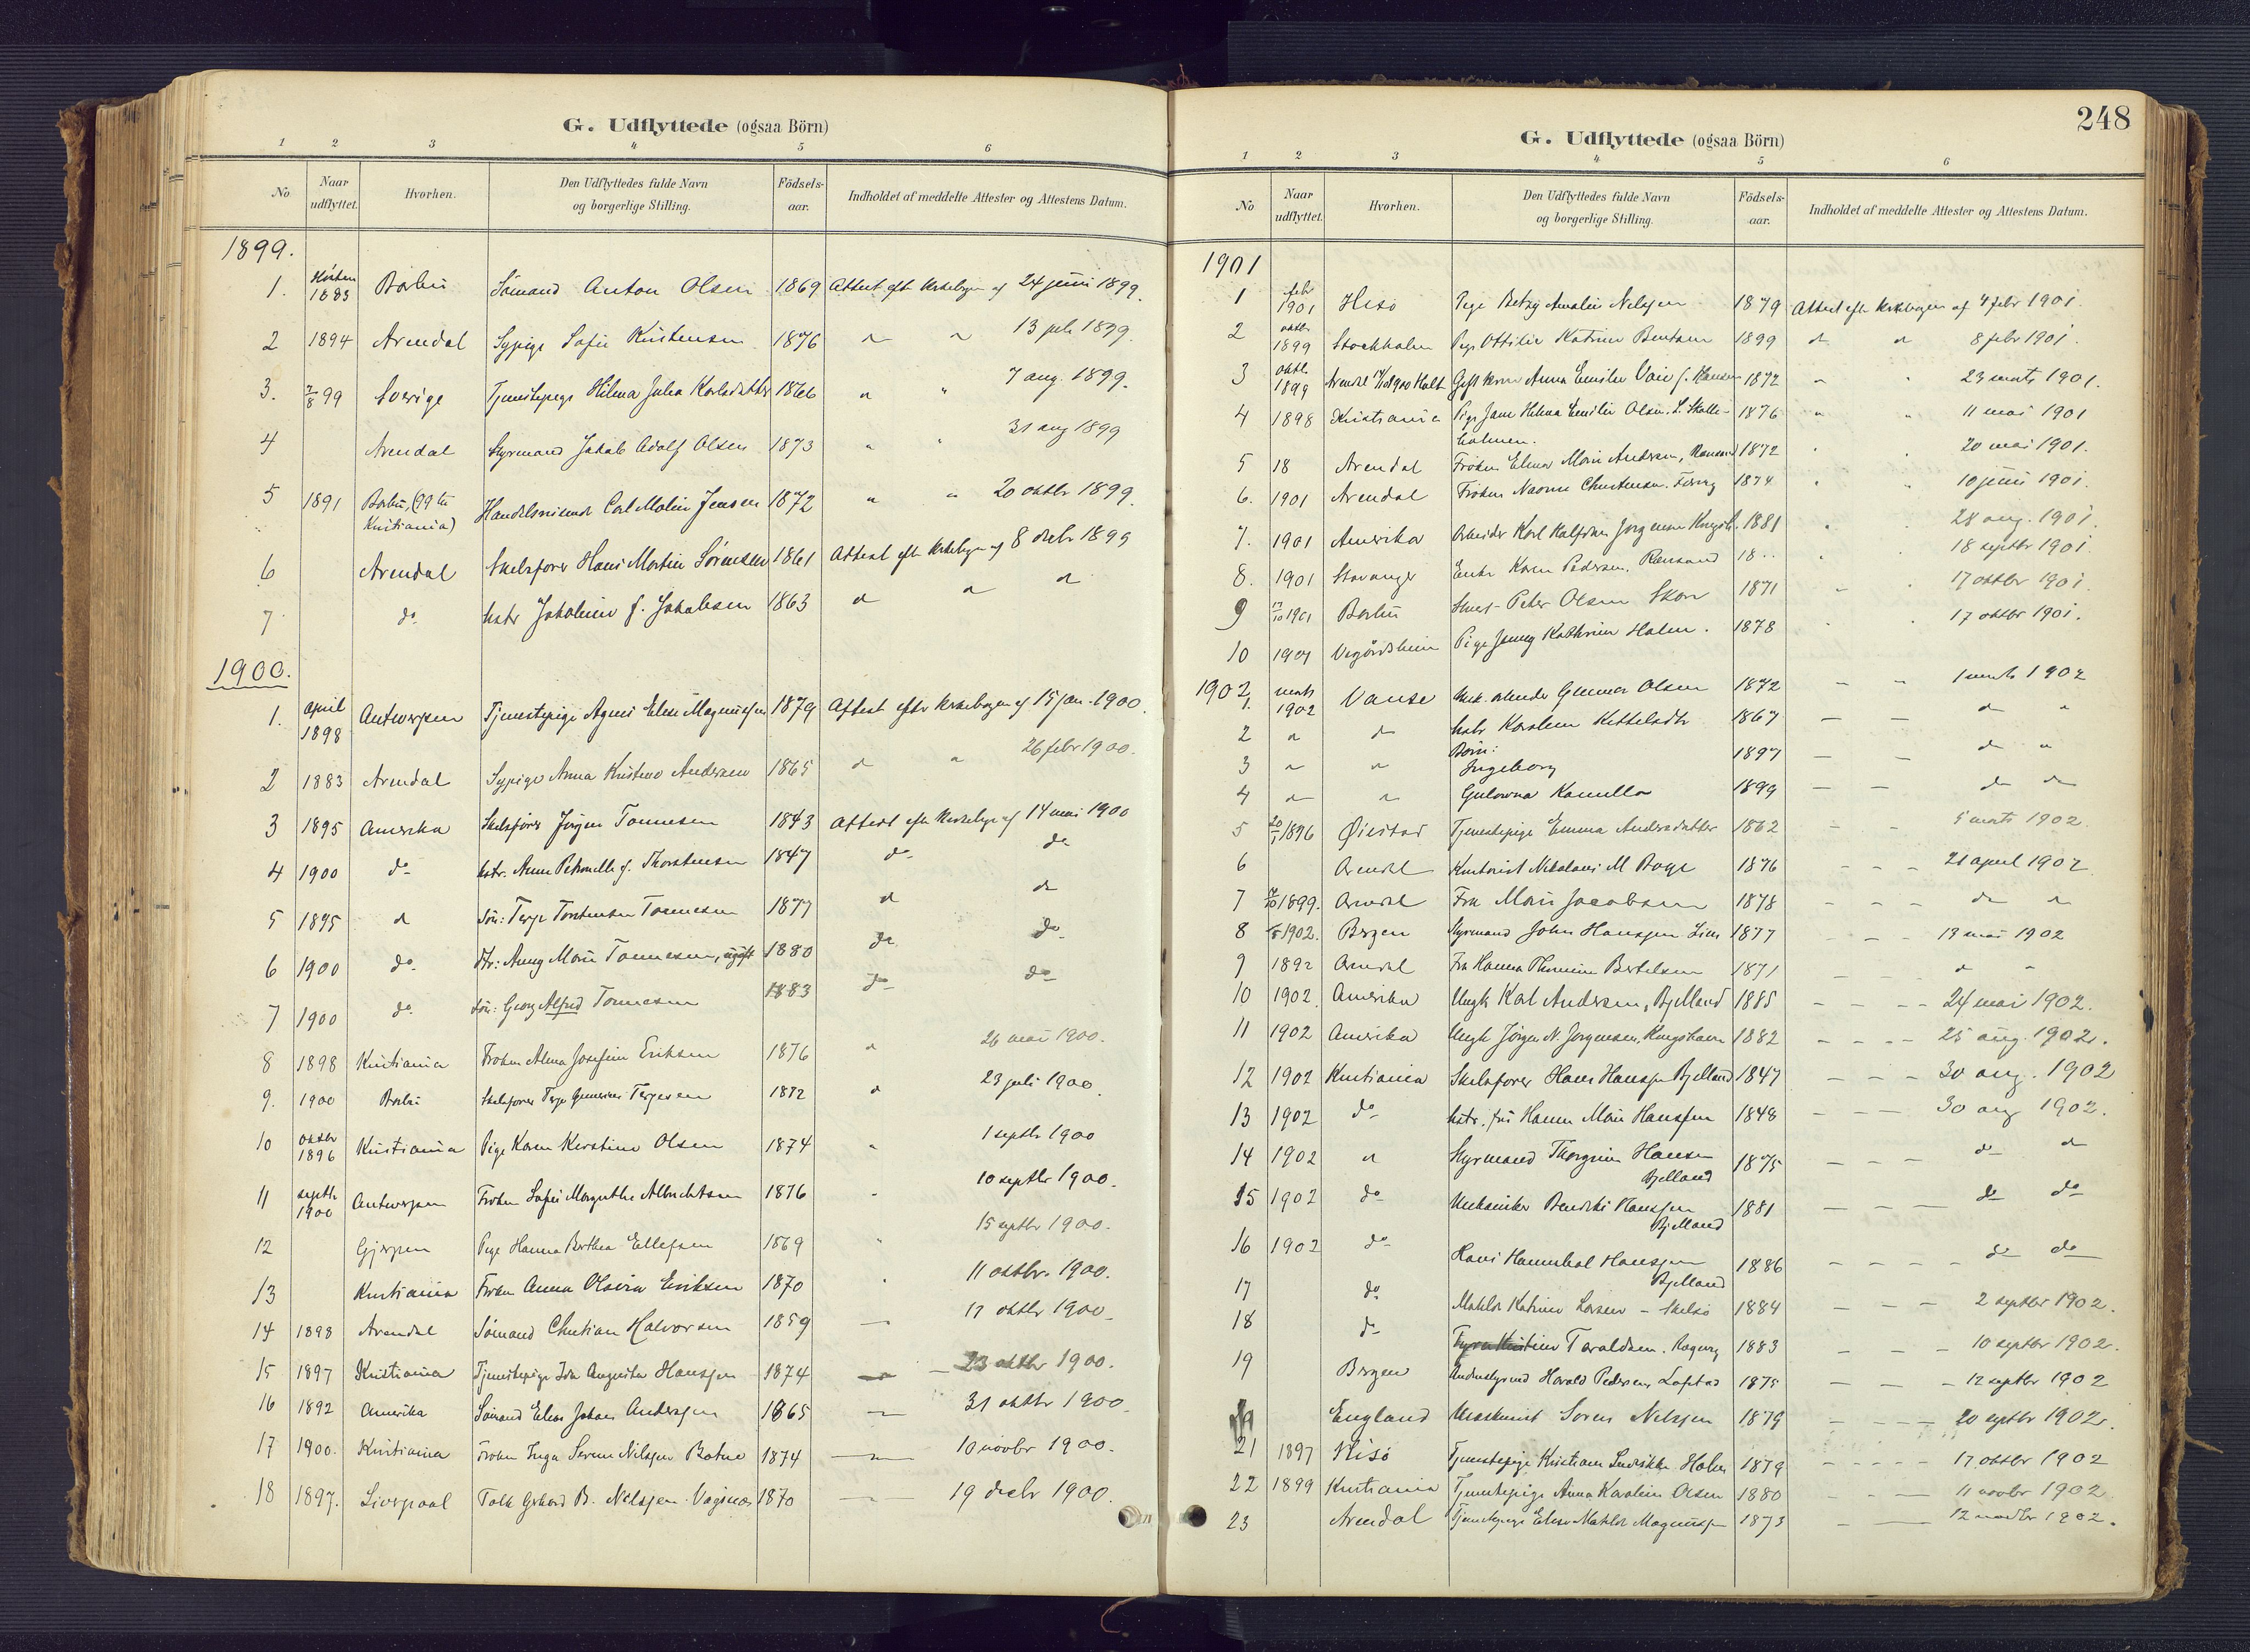 G. Udflyttede (ogsaa Börn)
1 2 3 4 5 6
No Naar udflyttet. Hvorhen. Den Udflyttedes fulde Navn og borgerlige Stilling. Födselsaar. Indholdet af meddelte Attester og Attestens Datum.
1899.
1. Høsten 1883 Barbu Sömand Anton Olsen 1869 Attest efter Kirkebogen af 24 juni 1899.
2 1894 Arendal Sypige Sofie Kristensen 1876 " " 13 juli 1899.
3. 7/8 99 Sverige Tjenestepige Hilma Julia Karlsdatter 1866 " " 7 aug. 1899.
4 Arendal Styrmand Jakob Adolf Olsen 1873 " " 31 aug 1899
5 1891 Barbu, (99 til Kristiania) Handelsmand Carl Malin Jensen 1872 " " 20 oktbr 1899.
6 Arendal Skibsfører Hans Martin Sörensen 1861 Attest efter Kirkebogen af 8 decbr 1899
7 do. hstr Jakobine f. Jakobsen 1863 " " "
1900.
1. april 1898 Antwerpen Tjenestepige Agnes Elise Magnussen 1879 Attest efter Kirkebogen af 15 jan. 1900.
2 1883 Arendal Sypige Anna Kristine Andersen 1865 " " 26 febr 1900.
3 1895 Amerika Skibsförer Jörgen Tönnesen 1843 Attest efter Kirkebogen af 14 mai 1900
4 1900 do hstr. Anne Petronelle f. Thorstensen 1847 do do
5 1895 " sön: Terje Torstensen Tönnesen 1877 " "
6 1900 do. dtr: Anny Marie Tönnesen, ugift 1880 do do
7 1900 do. sön: Georg Alfred Tönnesen 1883 do do
8 1898 Kristiania Fröken Alma Josefine Eriksen 1876 " 26 mai 1900.
9. 1900 Barbu Skibsförer Terje Gunerius Terjesen 1872 " 23 juli 1900
10 oktbr 1896 Kristiania Pige Karen Kirstine Olsen 1874 " 1 septbr 1900
11 septbr 1900 Antwerpen Fröken Sofie Margrethe Albrechtsen 1876 " 10 septbr 1900.
12 Gjerpen Pige Hanna Berthea Ellefsen 1869 " 15 septbr 1900.
13 Kristiania Fröken Anna Olivia Eriksen 1870 " 11 oktbr. 1900.
14 1898 Arendal Sömand Christian Halvorsen 1859 — 17 oktbr 1900
15 1897 Kristiania Tjenestepige Ida Augusta Hanssen 1874 — 23 oktbr 1900.
16 1892 Amerika Sömand Elias Johan Anderssen 1865 — 31 oktbr 1900.
17 1900. Kristiania Fröken Inga Serine Nilssen Botne 1874 — 10 novbr 1900.
18 1897. Liverpool Tolk Gerhard B. Nilssen Vagsnes 1870 — 19 decbr 1900.
248
G. Udflyttede (ogsaa Börn)
1 2 3 4 5 6
No Naar udflyttet. Hvorhen. Den Udflyttedes fulde Navn og borgerlige Stilling. Födselsaar. Indholdet af meddelte Attester og Attestens Datum.
1901
1 febr 1901 Hisö Pige Betzy Amalie Nilssen 1879 Attest efter Kirkebogen af 4 febr 1901.
2 oktbr 1899 Stockholm Pige Ottilie Katrine Bentsen 1899 " " 8 febr 1901.
3 oktbr. 1899 Arendal Holt Gift kone Anna Emilie f. Hansen 1872 " " 23 marts 1901.
4 1898 Kristiania Pige Jane Helene Emilie Olsen. L. Skotteholmen. 1876 " " 11 mai 1901
5 18 Arendal Fröken Elena Marie Andersen, Rænsund 1872 " " 20 mai 1901.
6. 1901 Arendal Fröken Naomi Christensen. Færvig 1874 " " 10 juni 1901.
7. 1901 Amerika Arbeider Karl Halfdan Jörgensen Kongsh. 1881 " " 28 aug. 1901.
8. 1901 Stavanger Enke Karen Pedersen. Rænsund 18.. " " 18 septbr 1901.
9 /10 1901 Barbu Peter Olsen Skare 1871 " " 17 oktbr 1901.
10 1901 Vegårdsheien Pige Jenny Kathrine Holm. 1878 " " 17 oktbr 1901.
1902
1. marts 1902 Vanse arbeider Gunnar Olsen 1872 — — 1 marts 1902
2 " " hstr Karoline Kittelsdtr 1867 — — " "
Börn:
3 " " Ingeborg 1897 — — do "
4 " " Gulovna Kamilla 1899 — — do do
5 20/1 1896 Øiestad Tjenestepige Emma Andersdatter 1862 — — 5 marts 1902
6 Arendal Kontorist Nikolai M Boye 1876 — — — 21 april 1902
7 /10 1899. Arendal Fru Marie Jacobsen 1878 — — — do "
8 /5 1902. Bergen Styrmand John Hanssen Lien 1877 — — — 19 mai 1902
9 1892 Arendal Fru Hanna Thomine Bertelsen 1871 — — " "
10 1902. Amerika Ungk Karl Andersen, Bjelland 1885 — — — — 24 mai 1902.
11 1902 Amerika Ungk Jörgen N. Jörgensen, Kongshavn 1882 — — — — 25 aug. 1902.
12 1902 Kristiania Skibsförer Hans Hanssen Bjelland 1847 — — — 30 aug. 1902
13 1902 do hstr. fru Hanne Marie Hanssen 1848 — — — 30 aug 1902.
14 1902 " Styrmand Thorgrim Hansen Bjelland 1875 — — — do "
15 1902 do Mekaniker Hanssen Bjelland 1881 — — — do do
16 1902 do Hans Hannibal Hanssen Bjelland 1886 — — — — do do
17 do Matilde Katrine Larsen – Skilsö 1884 — — — 2 septbr 1902.
18 do Taraldsen. Ragevig 1883 — — — 10 septbr 1902.
19 Bergen Andenstyrmd Harald Pedersen Loftad 1875 — — — 12 septbr 1902
England Maskinist Sören Nilssen 1879 — — — — 20 septbr 1902.
21 1897 Hisö Tjenestepige Kristiane Holm 1879 — — — — — 17 oktbr 1902
22 1899 Kristiania Tjenestepige Anna Karoline Olsen 1880 — — — 11 novbr 1902
23 Arendal Tjenestepige Elise Matilde Magnussen 1873 — — 12 novbr 1902.